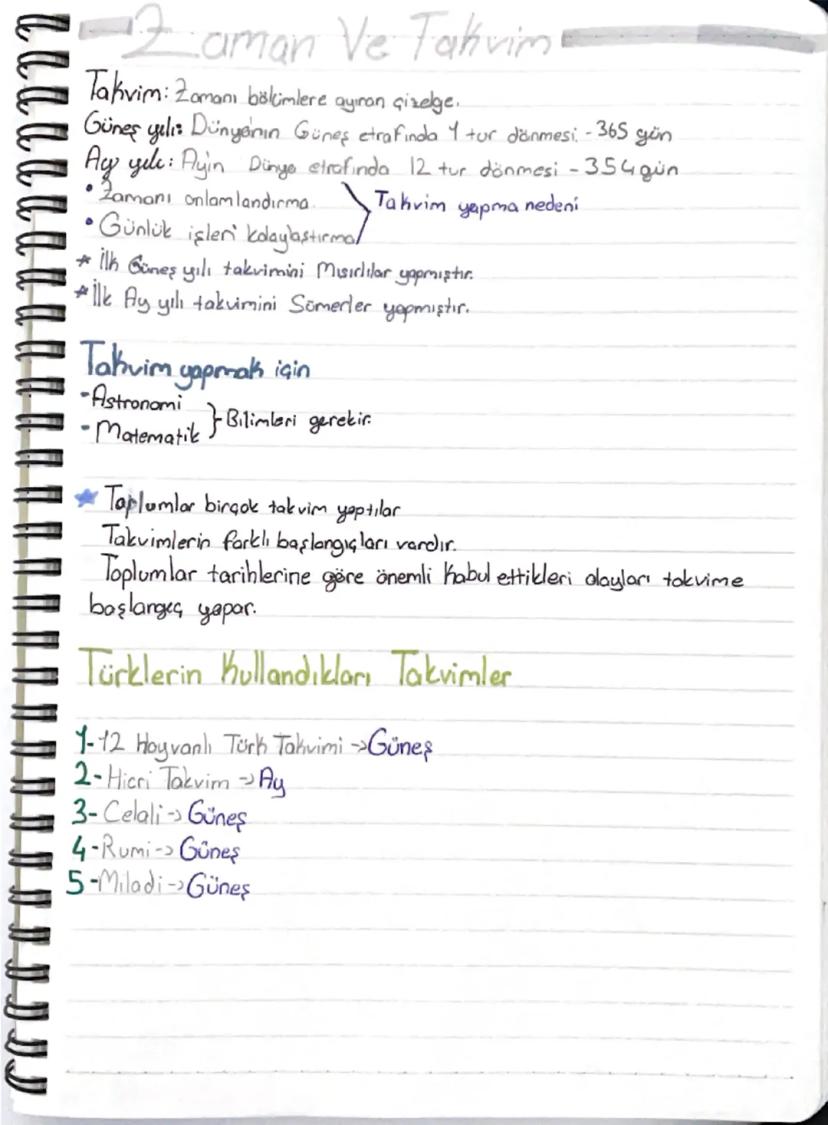 Zaman Ve Takvim
Takvim: Zamanı bölümlere ayıran çizelge.
Güneş yılı: Dünya'nın Güneş etrafında 1 tur dönmesi - 365 gün
Ay yılı: Ay'ın Dünya etrafında 12 tur dönmesi - 354 gün
• Zamanı anlamlandırma
• Günlük işleri kolaylaştırma
Takvim yapma nedeni
* İlk Güneş yılı takvimini Mısırlılar yapmıştır.
* İlk Ay yılı takvimini Sümerler yapmıştır.
Takvim yapmak için
- Astronomi
- Matematik
} Bilimleri gerekir.
★ Toplumlar birçok takvim yaptılar
Takvimlerin farklı başlangıçları vardır.
Toplumlar tarihlerine göre önemli kabul ettikleri olayları takvime
başlangıç yapar.
Türklerin Kullandıkları Takvimler
1-12 Hayvanlı Türk Takvimi -> Güneş
2- Hicri Takvim -> Ay
3- Celali -> Güneş
4- Rumi -> Güneş
5- Miladi -> Güneş